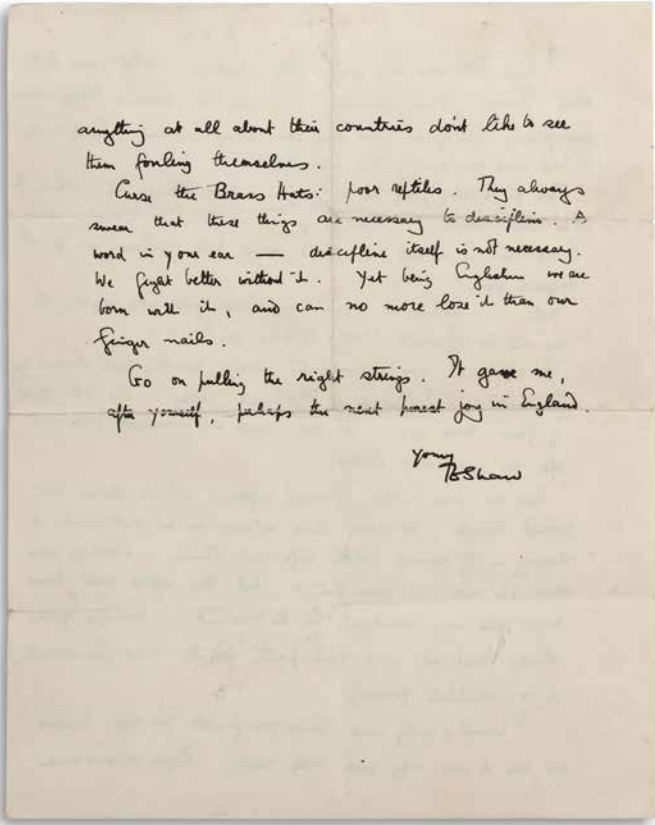 anything at all about their countries don't like to see
them fouling themselves.
Curse the Brass Hats: poor reptiles. They always
swear that these things are necessary to discipline. A
word in your ear — discipline itself is not necessary.
We fight better without it. Yet being Englishmen we are
born with it, and can no more lose it than our
finger nails.
Go on pulling the right strings. It gave me,
after yourself, perhaps the next purest joy in England.
Yours
TEShaw